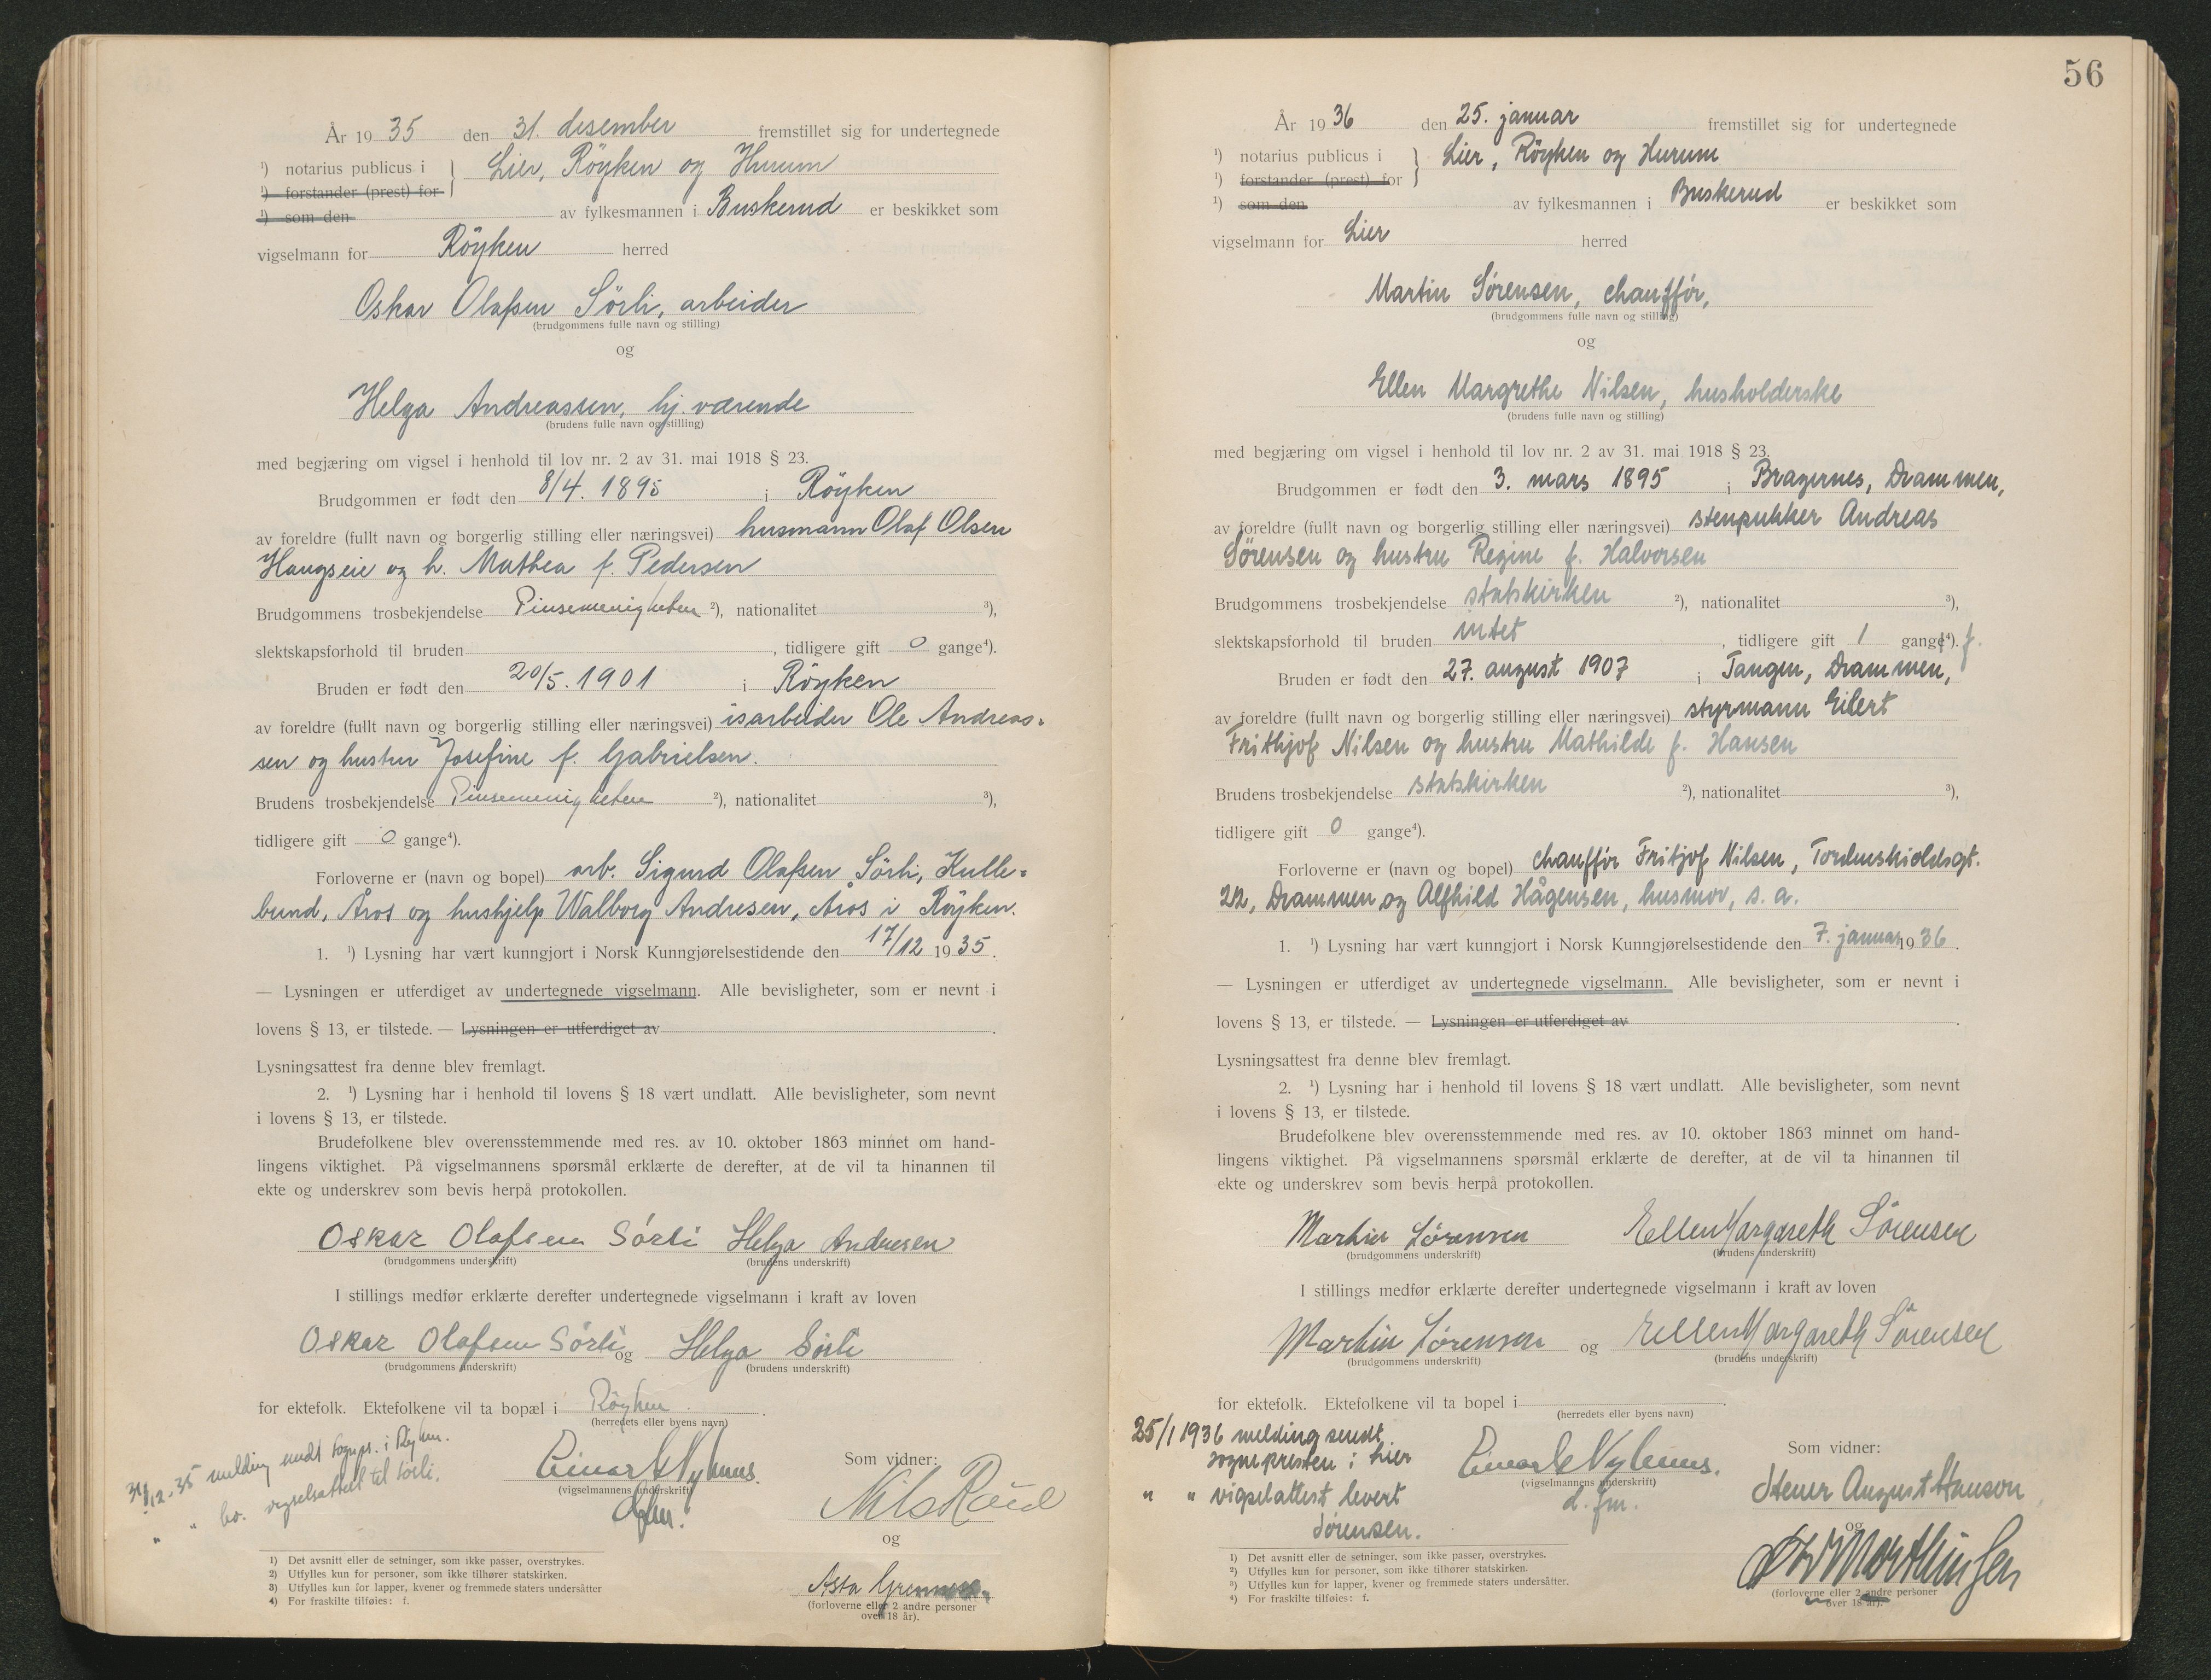 År 1935 den 31. desember fremstillet sig for undertegnede
¹) notarius publicus i } Lier, Röyken og Hurum
¹) forstander (prest) for
¹) som den av fylkesmannen i Buskerud er beskikket som
vigselmann for Röyken herred
Oskar Olafsen Sörli, arbeider
(brudgommens fulle navn og stilling)
og
Helga Andreassen, hj. værende
(brudens fulle navn og stilling)
med begjæring om vigsel i henhold til lov nr. 2 av 31. mai 1918 § 23.
Brudgommen er født den 8/4. 1895 i Röyken
av foreldre (fullt navn og borgerlig stilling eller næringsvei) husmann Olaf Olsen
Haugseie og h. Mathea f. Pedersen
Brudgommens trosbekjendelse Pinsemenigheten ²), nationalitet ³),
slektskapsforhold til bruden , tidligere gift 0 gange⁴).
Bruden er født den 20/5. 1901 i Röyken
av foreldre (fullt navn og borgerlig stilling eller næringsvei) isarbeider Ole Andreas-
sen og hustru Josefine f. Gabrielsen.
Brudens trosbekjendelse Pinsemenigheten ²), nationalitet ³),
tidligere gift 0 gange⁴).
Forloverne er (navn og bopel) arb. Sigurd Olafsen Sörli, Kulle-
bund, Åros og hushjelp Walborg Andresen, Åros i Röyken.
1. ¹) Lysning har vært kunngjort i Norsk Kunngjørelsestidende den 17/12 1935.
— Lysningen er utferdiget av undertegnede vigselmann. Alle bevisligheter, som er nevnt i
lovens § 13, er tilstede. — Lysningen er utferdiget av .
Lysningsattest fra denne blev fremlagt.
2. ¹) Lysning har i henhold til lovens § 18 vært undlatt. Alle bevisligheter, som nevnt
i lovens § 13, er tilstede.
Brudefolkene blev overensstemmende med res. av 10. oktober 1863 minnet om hand-
lingens viktighet. På vigselmannens spørsmål erklærte de derefter, at de vil ta hinannen til
ekte og underskrev som bevis herpå protokollen.
Oskar Olafsen Sórli Helga Andresen
(brudgommens underskrift) (brudens underskrift)
I stillings medfør erklærte derefter undertegnede vigselmann i kraft av loven
Oskar Olafsen Sörli og Helga Sörli
(brudgommens underskrift) (brudens underskrift)
for ektefolk. Ektefolkene vil ta bopæl i Röyken.
(herredets eller byens navn)
31/12-35 melding sendt sognpr. i Röyken.
" " bo. vigselsattest til Sörli.
(vigselmannens underskrift)
Som vidner:
Nils
og
Asta
(forloverne eller 2 andre personer
over 18 år).
1) Det avsnitt eller de setninger, som ikke passer, overstrykes.
2) Utfylles kun for personer, som ikke tilhører statskirken.
3) Utfylles kun for lapper, kvener og fremmede staters undersåtter
4) For fraskilte tilføies: f.
56
År 1936 den 25. januar fremstillet sig for undertegnede
¹) notarius publicus i } Lier, Röyken og Hurum
¹) forstander (prest) for
¹) som den av fylkesmannen i Buskerud er beskikket som
vigselmann for Lier herred
Martin Sørensen, chaufför,
(brudgommens fulle navn og stilling)
og
Ellen Margrethe Nilsen, husholderske
(brudens fulle navn og stilling)
med begjæring om vigsel i henhold til lov nr. 2 av 31. mai 1918 § 23.
Brudgommen er født den 3. mars 1895 i Bragernes, Drammen,
av foreldre (fullt navn og borgerlig stilling eller næringsvei) stenpukker Andreas
Sørensen og hustru Regine f. Halvorsen
Brudgommens trosbekjendelse statskirken ²), nationalitet ³),
slektskapsforhold til bruden intet , tidligere gift 1 gange⁴). f.
Bruden er født den 27. august 1907 i Tangen, Drammen,
av foreldre (fullt navn og borgerlig stilling eller næringsvei) styrmann Eilert
Frithjof Nilsen og hustru Mathilde f. Hansen
Brudens trosbekjendelse statskirken ²), nationalitet ³),
tidligere gift 0 gange⁴).
Forloverne er (navn og bopel) chaufför Fritjof Nilsen, Tordenskioldsgt.
22, Drammen og Alfhild Hågensen, husmor, s. a.
1. ¹) Lysning har vært kunngjort i Norsk Kunngjørelsestidende den 7. januar 1936.
— Lysningen er utferdiget av undertegnede vigselmann. Alle bevisligheter, som er nevnt i
lovens § 13, er tilstede. — Lysningen er utferdiget av .
Lysningsattest fra denne blev fremlagt.
2. ¹) Lysning har i henhold til lovens § 18 vært undlatt. Alle bevisligheter, som nevnt
i lovens § 13, er tilstede.
Brudefolkene blev overensstemmende med res. av 10. oktober 1863 minnet om hand-
lingens viktighet. På vigselmannens spørsmål erklærte de derefter, at de vil ta hinannen til
ekte og underskrev som bevis herpå protokollen.
Martin Sørensen Ellen Margareth Sørensen
(brudgommens underskrift) (brudens underskrift)
I stillings medfør erklærte derefter undertegnede vigselmann i kraft av loven
Martin Sørensen og Ellen Margareth Sørensen
(brudgommens underskrift) (brudens underskrift)
for ektefolk. Ektefolkene vil ta bopel i .
(herredets eller byens navn)
25/1 1936 melding sendt
sognepresten i Lier
" " vigselattest levert
Sørensen.
(vigselmannens underskrift)
d. fm.
Som vidner:
August Hanson
og
(forloverne eller 2 andre personer
over 18 år).
1) Det avsnitt eller de setninger, som ikke passer, overstrykes.
2) Utfylles kun for personer, som ikke tilhører statskirken.
3) Utfylles kun for lapper, kvener og fremmede staters undersåtter.
4) For fraskilte tilføies: f.